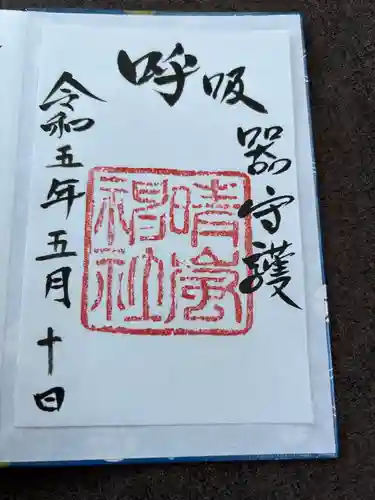 呼吸器守護
晴嵐
神社
令和五年五月十日